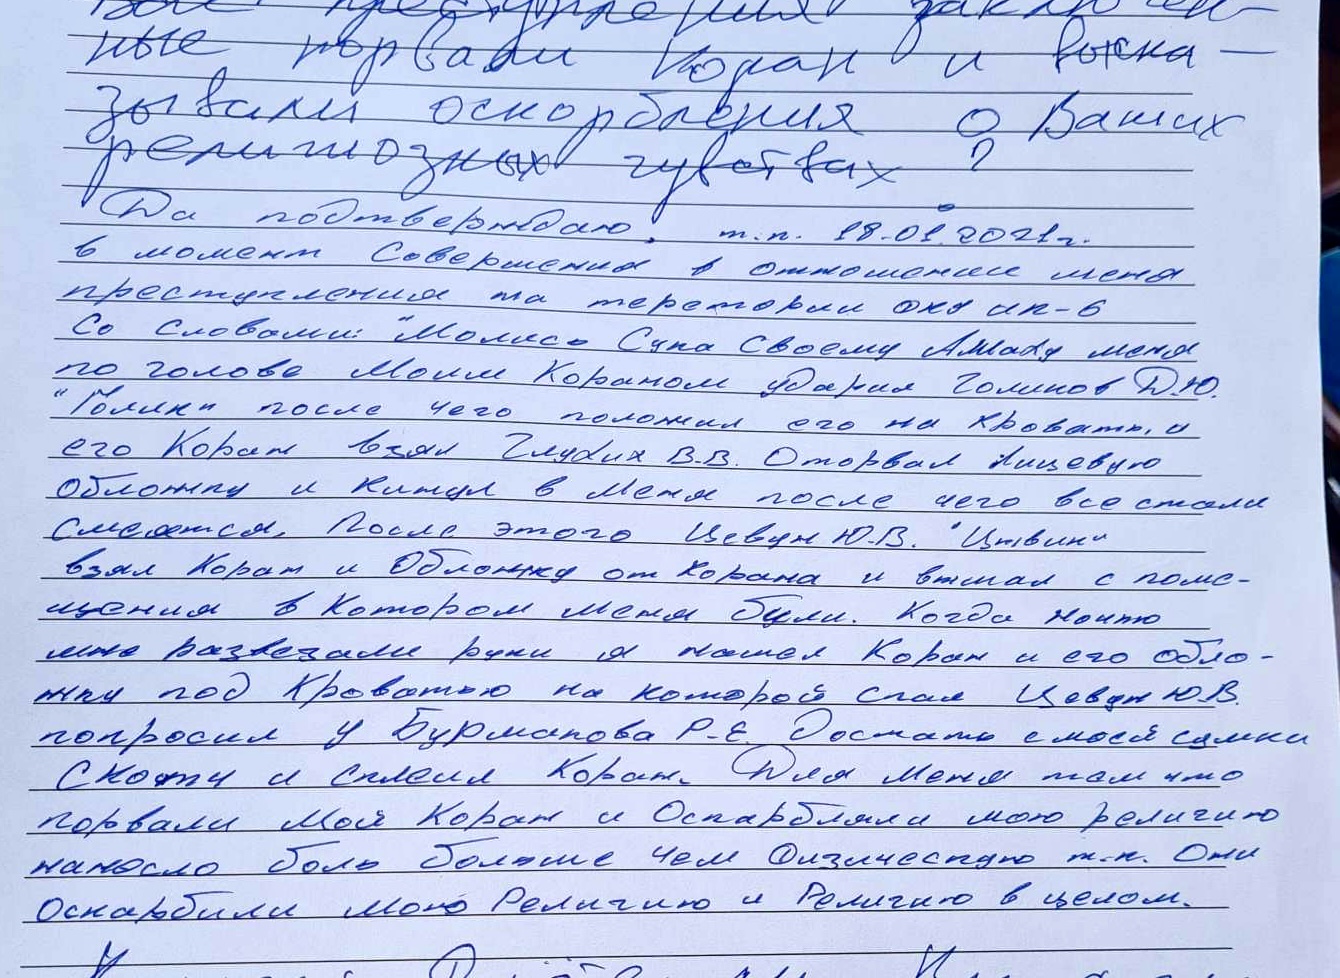 Вас преступления заключен-
ные порвали Коран и выска-
зывали оскорбления о Ваших
религиозных чувствах?
Да подтверждаю, т.к. 18.01.2021г.
в момент Совершения в отношении меня
преступления на теретории ФКУ ИК-6
Со словами: "Молись Сука Своему Аллаху меня
по голове Моим Кораном ударил Голиков Д.Ю.
"Голик" после чего положил его на Кровать, и
его Коран взял Глухих В.В. Оторвал лицевую
обложку и кинул в Меня после чего все стали
Смеятся. После этого Цевун Ю.В.
взял Коран и Обложку от Корана и с поме-
щения в Котором меня били. Когда ночью
мне развезали руки я нашел Коран и его обло-
жку под Кроватью на которой спал Цевун Ю.В.
попросил у Бурмакова Р.Е. Достать с моей сумки
Скотч и Склеил Коран. Для Меня там что
порвали Мой Коран и Оскарбляли мою религию
нанесло боль больше чем Физическую т.к. Они
Оскарбили мою Религию и Религию в целом.